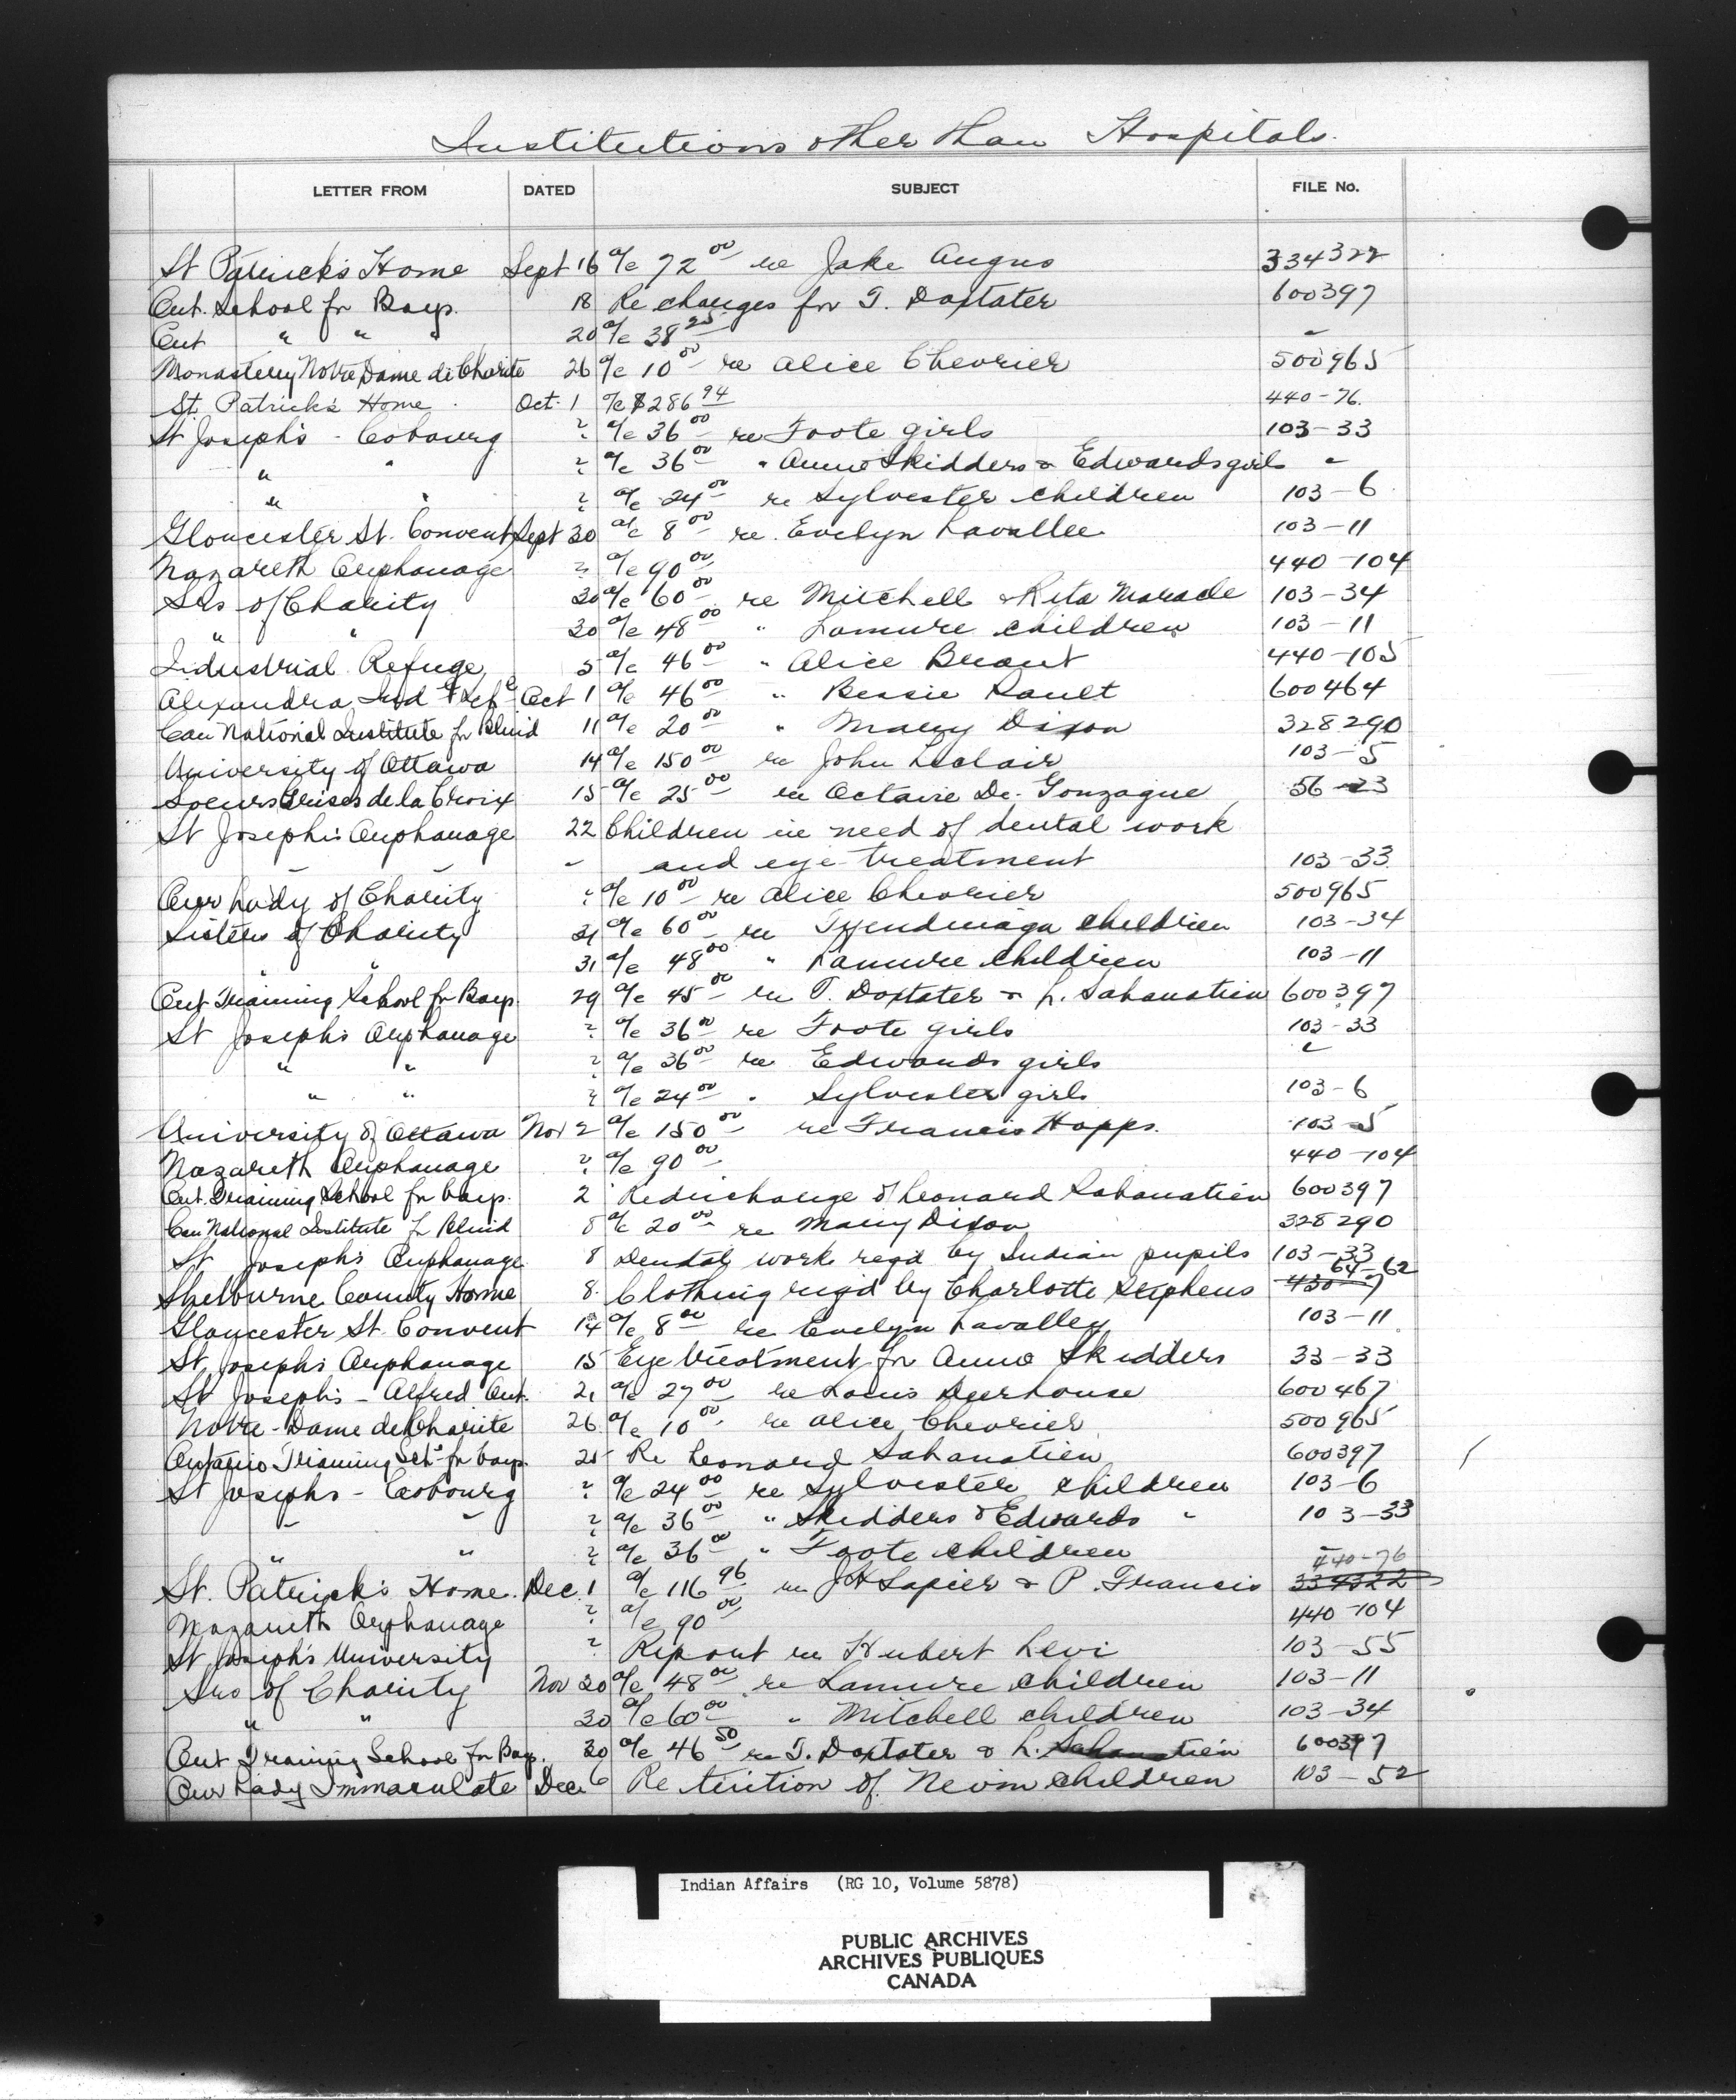 Institutions other than Hospitals.
LETTER FROM DATED SUBJECT FILE No.
St Patrick's Home Sept 16 a/c 72 00 re Jake Angus 334322
Ont. School for Boys. 18 Re charges for T. Doxtater 600397
Ont " " " 20 a/c 38 25 "
Monastery Notre Dame de Charite 26 a/c 10 00 re Alice Chevrier 500965
St. Patrick's Home Oct. 1 a/c $286 94 440-76.
St Joseph's - Cobourg " a/c 36 00 re Foote girls 103-33
" " " a/c 36 00 " Anna Skidders & Edwards girls "
" " " a/c 24 00 re Sylvester children 103-6
Gloucester St. Convent Sept 30 a/c 8 00 re Evelyn Lavallee 103-11
Nazareth Orphanage " a/c 90 00 440-104
Srs of Charity 30 a/c 60 00 re Mitchell & Rita Maracle 103-34
" " 30 a/c 48 00 " Lamure children 103-11
Industrial Refuge 5 a/c 46 00 " Alice Brant 440-105
Alexandra Ind Ref Oct 1 a/c 46 00 " Bessie Sault 600464
Can National Institute for Blind 11 a/c 20 00 " Mary Dixon 328290
University of Ottawa 14 a/c 150 00 re John Leclair 103-5
Soeurs Grises de la Croix 15 a/c 25 00 re Octavie De Gonzague 56-23
St Joseph's Orphanage 22 Children in need of dental work
" " " and eye treatment 103-33
Our Lady of Charity " a/c 10 00 re Alice Chevrier 500965
Sisters of Charity 31 a/c 60 00 re Tyendinaga children 103-34
" " 31 a/c 48 00 " Lamure children 103-11
Ont Training School for Boys. 29 a/c 45 00 re T. Doxtater & L. Sahanatien 600397
St Joseph's Orphanage " a/c 36 00 re Foote girls 103-33
" " " a/c 36 00 re Edwards girls "
" " " a/c 24 00 " Sylvester girls 103-6
University of Ottawa Nov 2 a/c 150 00 re Francis Happs. 103-5
Nazareth Orphanage " a/c 90 00 440-104
Ont. Training School for boys. 2 Re discharge of Leonard Sahanatien 600397
Can National Institute for Blind 8 a/c 20 00 re Mary Dixon 328290
St Joseph's Orphanage 8 Dental work reqd by Indian pupils 103-33
Shelburne County Home 8. Clothing reqd by Charlotte Stephens 64-62
Gloucester St. Convent 14 a/c 8 00 re Evelyn Lavalley 103-11
St Joseph's Orphanage 15 Eye treatment for Anna Skidders 33-33
St Joseph's - Alfred Ont. 21 a/c 27 00 re Louis Deerhouse 600467
Notre-Dame de Charite 26 a/c 10 00 re Alice Chevrier 500965
Ontario Training Sch. for boys. 25 Re Leonard Sahanatien 600397
St Joseph's - Cobourg " a/c 24 00 re Sylvester children 103-6
" " " a/c 36 00 " Skidders & Edwards " 103-33
" " " a/c 36 00 " Foote children "
St. Patrick's Home. Dec. 1 a/c 116 96 re J H Lapier & P. Francis 440-76 334322
Nazareth Orphanage " a/c 90 00 440-104
St Joseph's University " Report re Hubert Levi 103-55
Srs of Charity Nov 30 a/c 48 00 re Lamure children 103-11
" " 30 a/c 60 00 " Mitchell children 103-34
Ont Training School for Boys. 30 a/c 46 50 re T. Doxtater & L. Sahanatien 600397
Our Lady Immaculate Dec 6 Re tuition of Nevin children 103-52
Indian Affairs (RG 10, Volume 5878)
PUBLIC ARCHIVES
ARCHIVES PUBLIQUES
CANADA